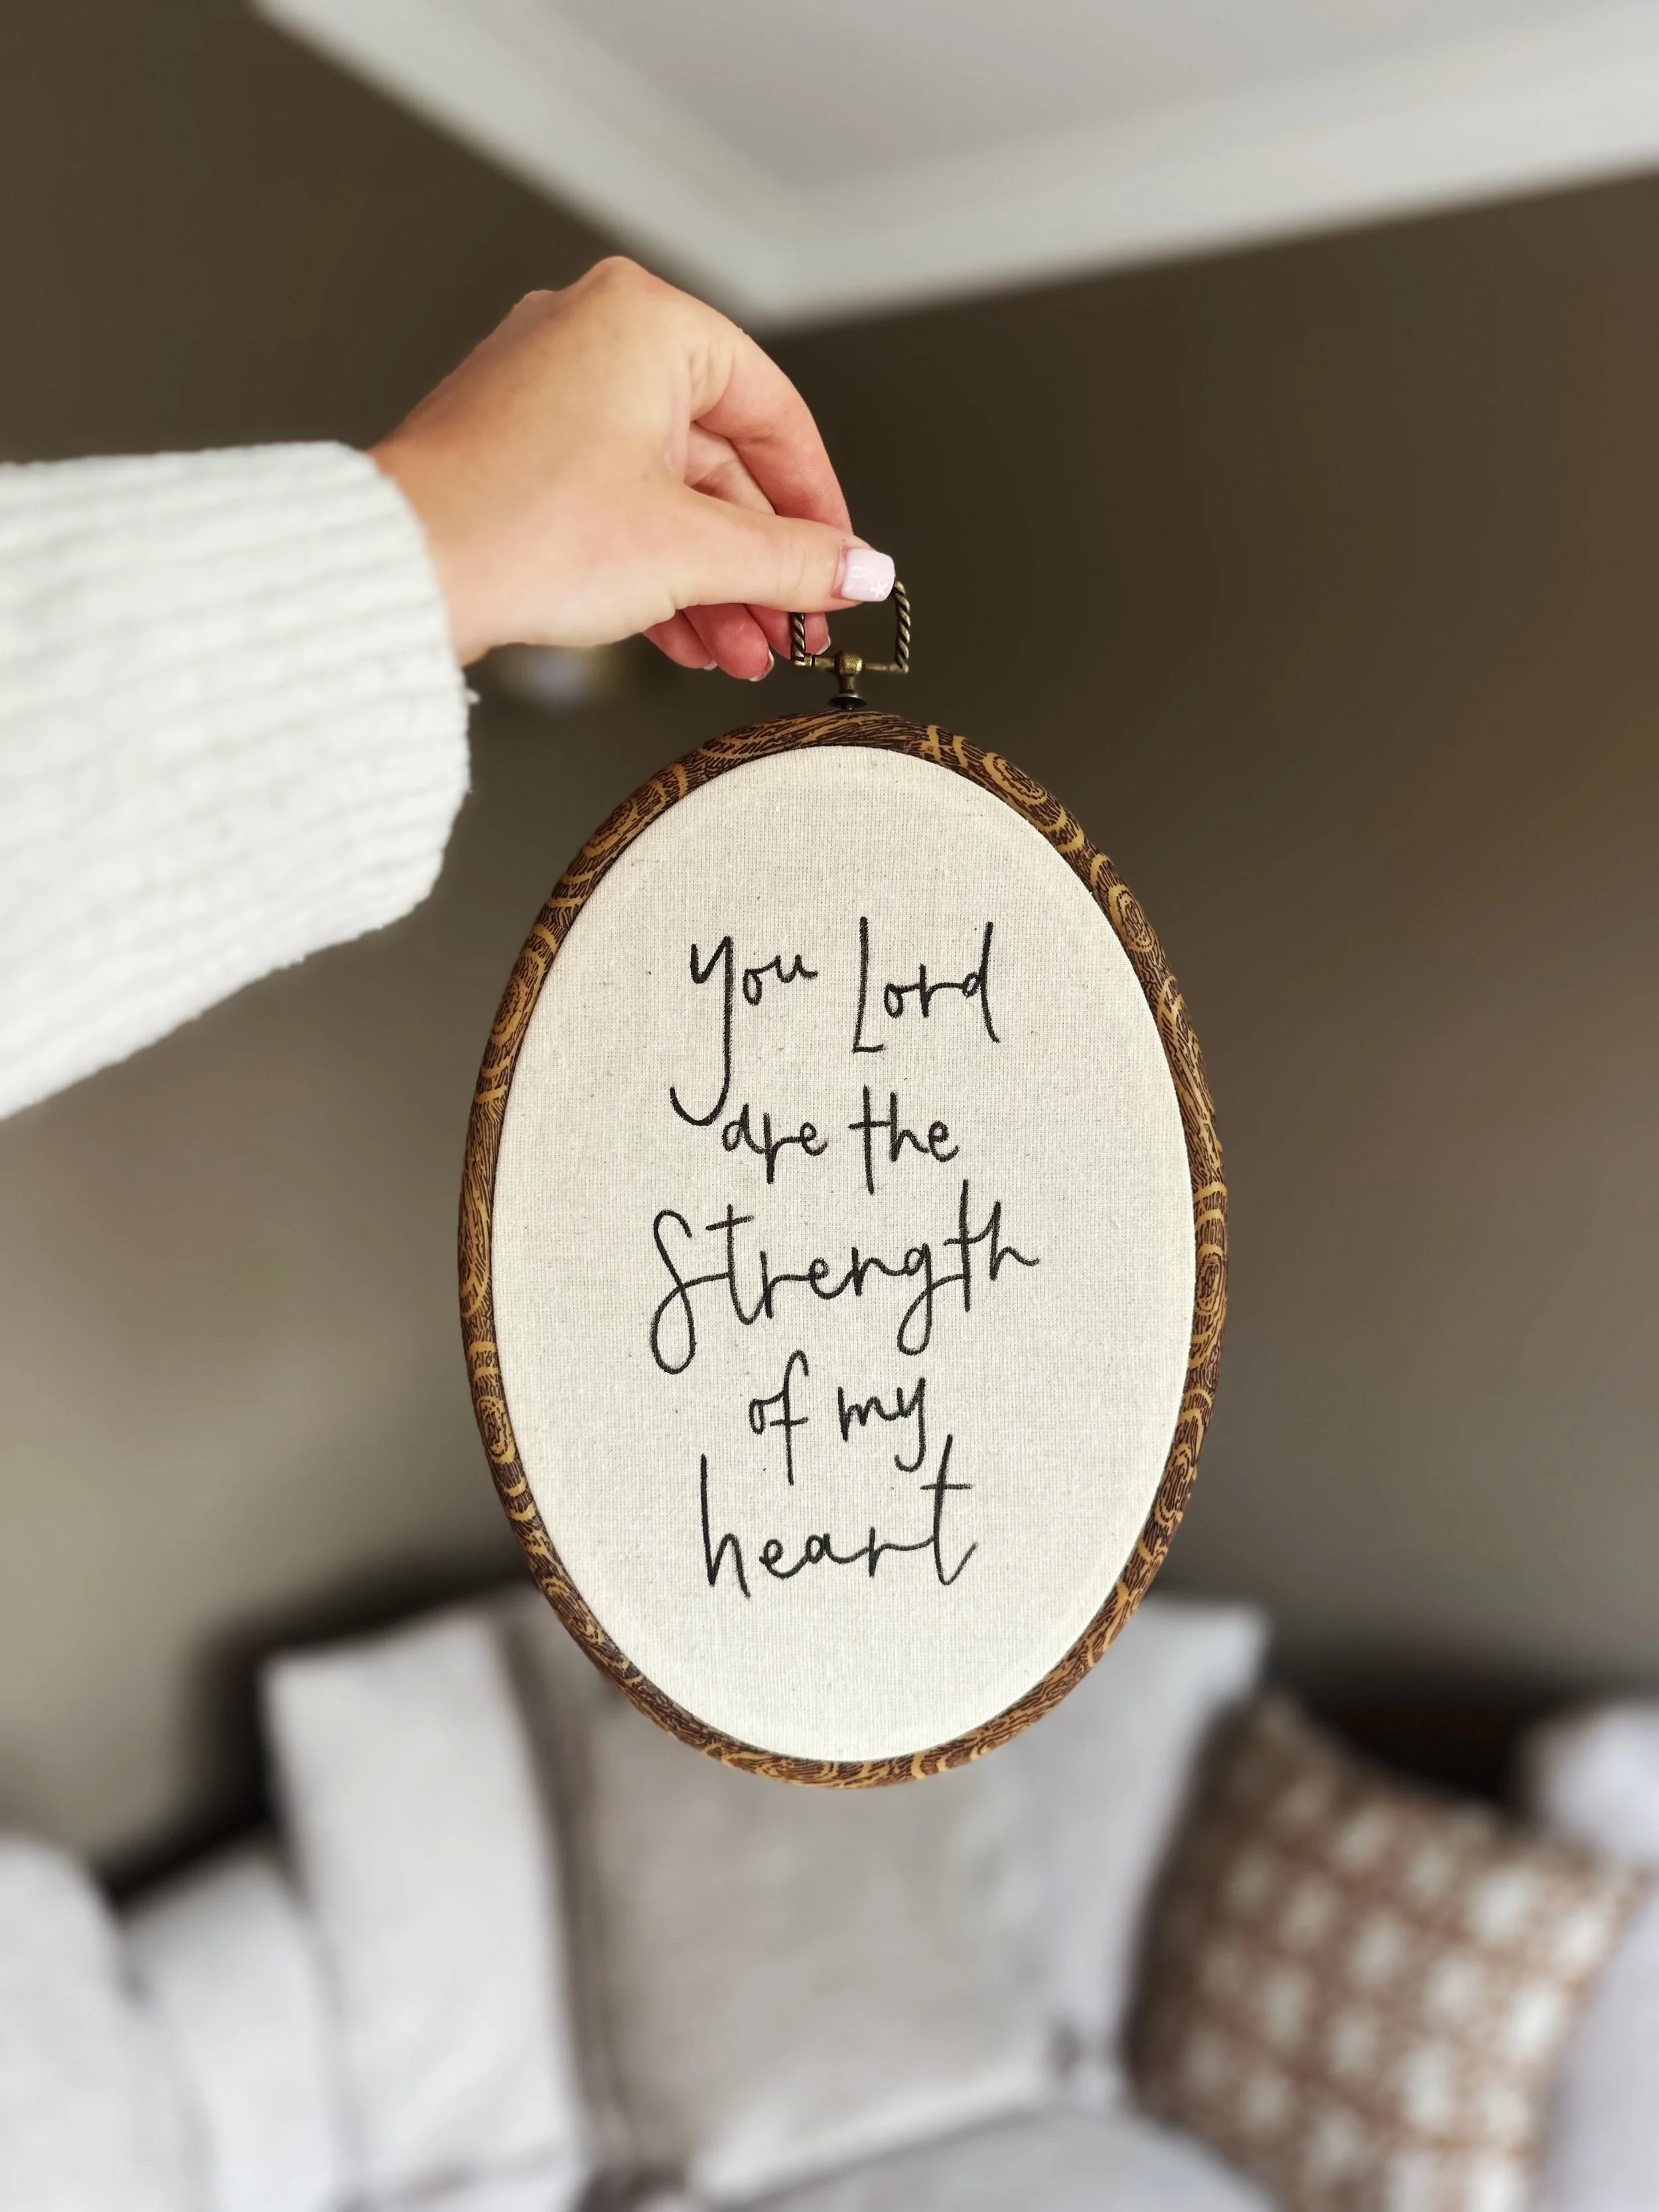 you Lord
are the
Strength
of my
heart